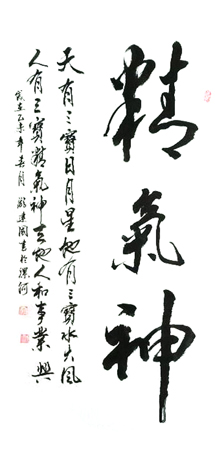 精氣神
天有三寶日月星地有三寶水火風
人有三寶精氣神天地人和事業興
歲在乙未年